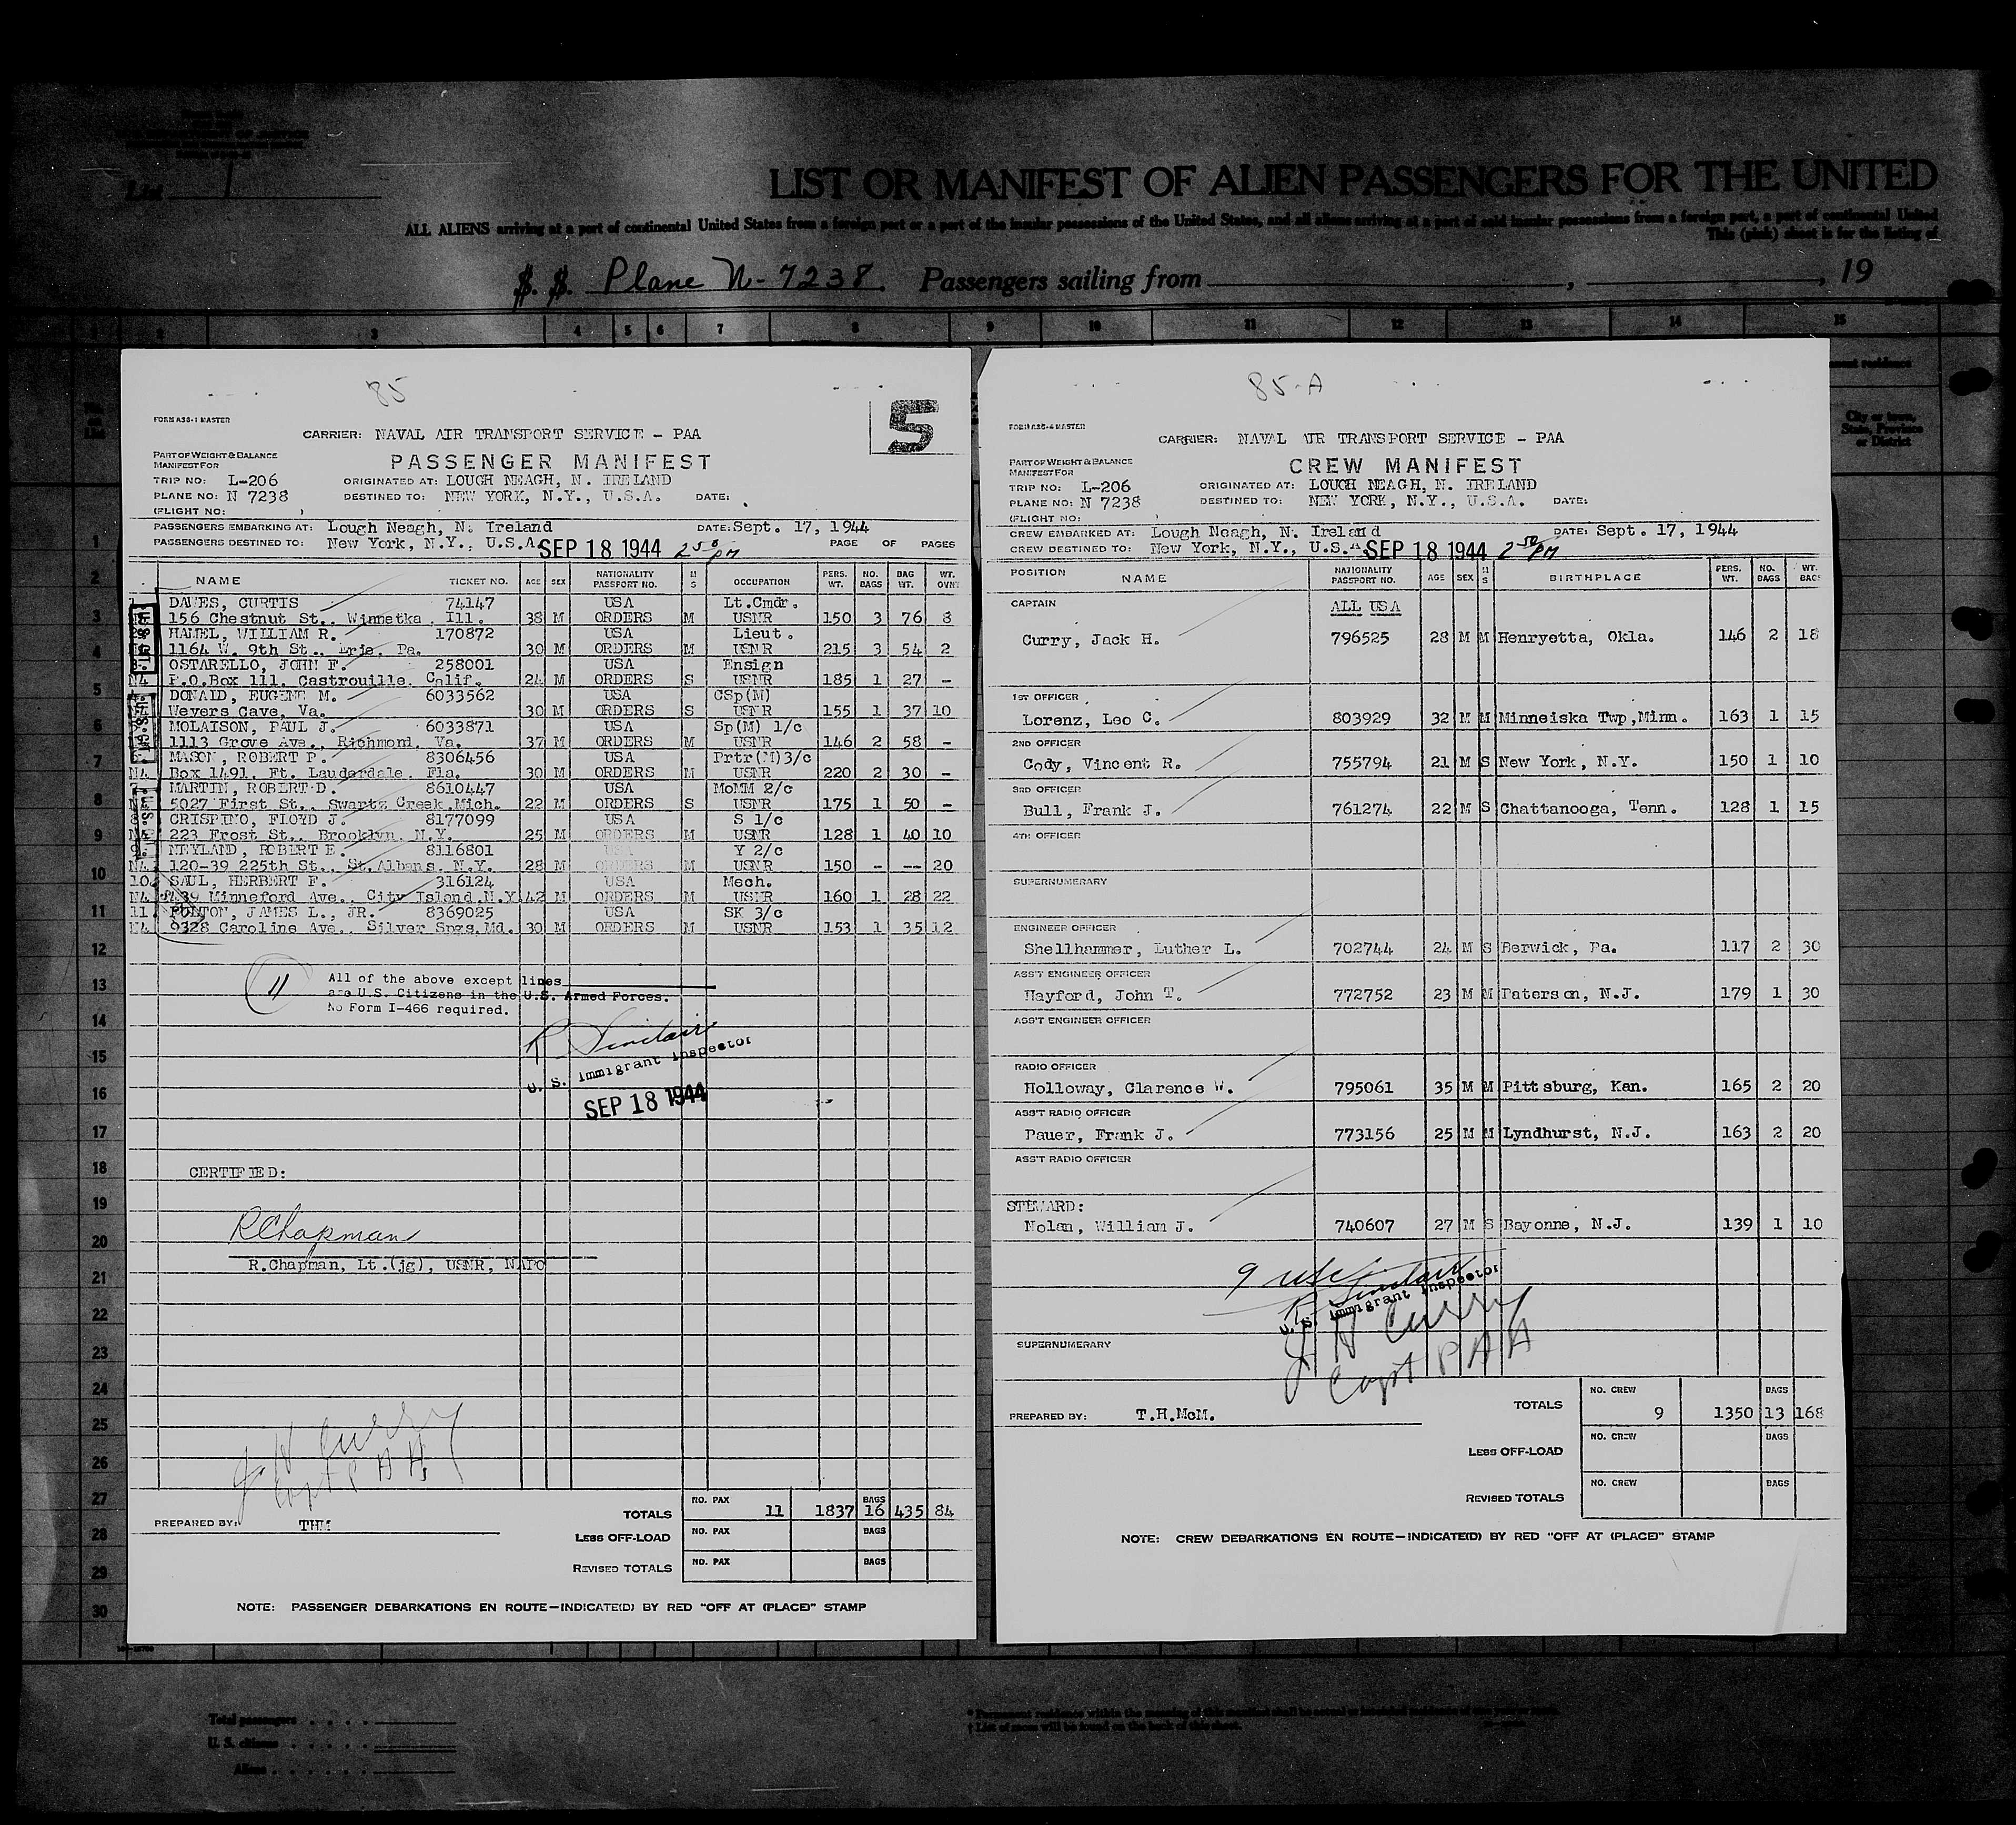 List 1
LIST OR MANIFEST OF ALIEN PASSENGERS FOR THE UNITED
ALL ALIENS arriving at a port of continental United States from a foreign port or a port of the insular possessions of the United States, and all aliens arriving at a port of said insular possessions from a foreign port, a port of continental United
This (pink) sheet is for the listing of
S. S. Plane N-7238. Passengers sailing from , , 19
1 2 3 4 5 6 7 8 9 10 11 12 13 14 15
City or town, State, Province or District
85
5
FORM A36-1 MASTER
CARRIER: NAVAL AIR TRANSPORT SERVICE - PAA
PART OF WEIGHT & BALANCE
MANIFEST FOR
PASSENGER MANIFEST
TRIP NO: L-206 ORIGINATED AT: LOUGH NEAGH, N. IRELAND
PLANE NO: N 7238 DESTINED TO: NEW YORK, N.Y., U.S.A. DATE:
(FLIGHT NO: )
PASSENGERS EMBARKING AT: Lough Neagh, N. Ireland DATE: Sept. 17, 1944
PASSENGERS DESTINED TO: New York, N.Y., U.S.A. SEP 18 1944 2 50 PM PAGE OF PAGES
NAME TICKET NO. AGE SEX NATIONALITY PASSPORT NO. M S OCCUPATION PERS. WT. NO. BAGS BAG WT. WT. OVN
DAWES, CURTIS 74147 USA Lt.Cmdr.
156 Chestnut St., Winnetka, Ill. 38 M ORDERS M USNR 150 3 76 8
HAMEL, WILLIAM R. 170872 USA Lieut.
1164 W. 9th St., Erie, Pa. 30 M ORDERS M USNR 215 3 54 2
OSTARELLO, JOHN F. 258001 USA Ensign
P.O.Box 111, Castrouille, Calif. 24 M ORDERS S USNR 185 1 27 -
DONAID, EUGENE M. 6033562 USA CSp(M)
Weyers Cave, Va. 30 M ORDERS S USNR 155 1 37 10
MOLAISON, PAUL J. 6033871 USA Sp(M) 1/c
1113 Grove Ave., Richmond, Va. 37 M ORDERS M USNR 146 2 58 -
MASON, ROBERT P. 8306456 USA Prtr(M)3/c
Box 1491, Ft. Lauderdale, Fla. 30 M ORDERS M USNR 220 2 30 -
MARTIN, ROBERT D. 8610447 USA MoMM 2/c
5027 First St., Swartz Creek,Mich. 22 M ORDERS S USNR 175 1 50 -
CRISPINO, FLOYD J. 8177099 USA S 1/c
223 Frost St., Brooklyn, N.Y. 25 M ORDERS M USNR 128 1 40 10
9. NEYLAND, ROBERT E. 8116801 USA Y 2/c
N4 120-39 225th St., St.Albans, N.Y. 28 M ORDERS M USNR 150 - -- 20
10. SAUL, HERBERT F. 316124 USA Mech.
N4 Minneford Ave., City Island,N.Y. 42 M ORDERS M USNR 160 1 28 22
11. FULTON, JAMES L., JR. 8369025 USA SK 3/c
N4 9328 Caroline Ave., Silver Spgs,Md. 30 M ORDERS M USNR 153 1 35 12
11 All of the above except lines
are U.S. Citizens in the U.S. Armed Forces.
No Form I-466 required.
R Sinclair
U. S. Immigrant Inspector
SEP 18 1944
CERTIFIED:
RChapman
R.Chapman, Lt.(jg), USNR, NAPO
J. H Curry
Capt PAA
PREPARED BY: THM
TOTALS NO. PAX 11 1837 BAGS 16 435 84
LESS OFF-LOAD NO. PAX BAGS
REVISED TOTALS NO. PAX BAGS
NOTE: PASSENGER DEBARKATIONS EN ROUTE—INDICATE(D) BY RED "OFF AT (PLACE)" STAMP
85-A
FORM A36-4 MASTER
CARRIER: NAVAL AIR TRANSPORT SERVICE - PAA
PART OF WEIGHT & BALANCE
MANIFEST FOR
CREW MANIFEST
TRIP NO: L-206 ORIGINATED AT: LOUGH NEAGH, N. IRELAND
PLANE NO: N 7238 DESTINED TO: NEW YORK, N.Y., U.S.A. DATE:
(FLIGHT NO: )
CREW EMBARKED AT: Lough Neagh, N. Ireland DATE: Sept. 17, 1944
CREW DESTINED TO: New York, N.Y., U.S.A. SEP 18 1944 2 50 PM
POSITION NAME NATIONALITY PASSPORT NO. AGE SEX M S BIRTHPLACE PERS. WT. NO. BAGS WT. BAGS
CAPTAIN ALL USA
Curry, Jack H. 796525 28 M M Henryetta, Okla. 146 2 18
1ST OFFICER
Lorenz, Leo C. 803929 32 M M Minneiska Twp,Minn. 163 1 15
2ND OFFICER
Cody, Vincent R. 755794 21 M S New York, N.Y. 150 1 10
3RD OFFICER
Bull, Frank J. 761274 22 M S Chattanooga, Tenn. 128 1 15
4TH OFFICER
SUPERNUMERARY
ENGINEER OFFICER
Shellhammer, Luther L. 702744 24 M S Berwick, Pa. 117 2 30
ASS'T ENGINEER OFFICER
Hayford, John T. 772752 23 M M Paterson, N.J. 179 1 30
ASS'T ENGINEER OFFICER
RADIO OFFICER
Holloway, Clarence W. 795061 35 M M Pittsburg, Kan. 165 2 20
ASS'T RADIO OFFICER
Pauer, Frank J. 773156 25 M M Lyndhurst, N.J. 163 2 20
ASS'T RADIO OFFICER
STEWARD:
Nolan, William J. 740607 27 M S Bayonne, N.J. 139 1 10
9 USC
R Sinclair
U. S. Immigrant Inspector
J H Curry
Capt PAA
SUPERNUMERARY
PREPARED BY: T.H.McM.
TOTALS NO. CREW 9 1350 BAGS 13 168
LESS OFF-LOAD NO. CREW BAGS
REVISED TOTALS NO. CREW BAGS
NOTE: CREW DEBARKATIONS EN ROUTE—INDICATE(D) BY RED "OFF AT (PLACE)" STAMP
1
2
3
4
5
6
7
8
9
10
11
12
13
14
15
16
17
18
19
20
21
22
23
24
25
26
27
28
29
30
Total passengers
U. S. citizens
Aliens
* Permanent residence within the meaning of this manifest shall be actual or intended residence of one year or more.
† List of races will be found on the back of this sheet.